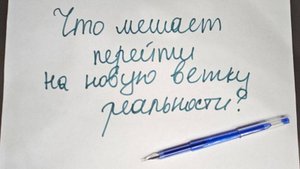 Что мешает
перейти
на новую ветку
реальности?